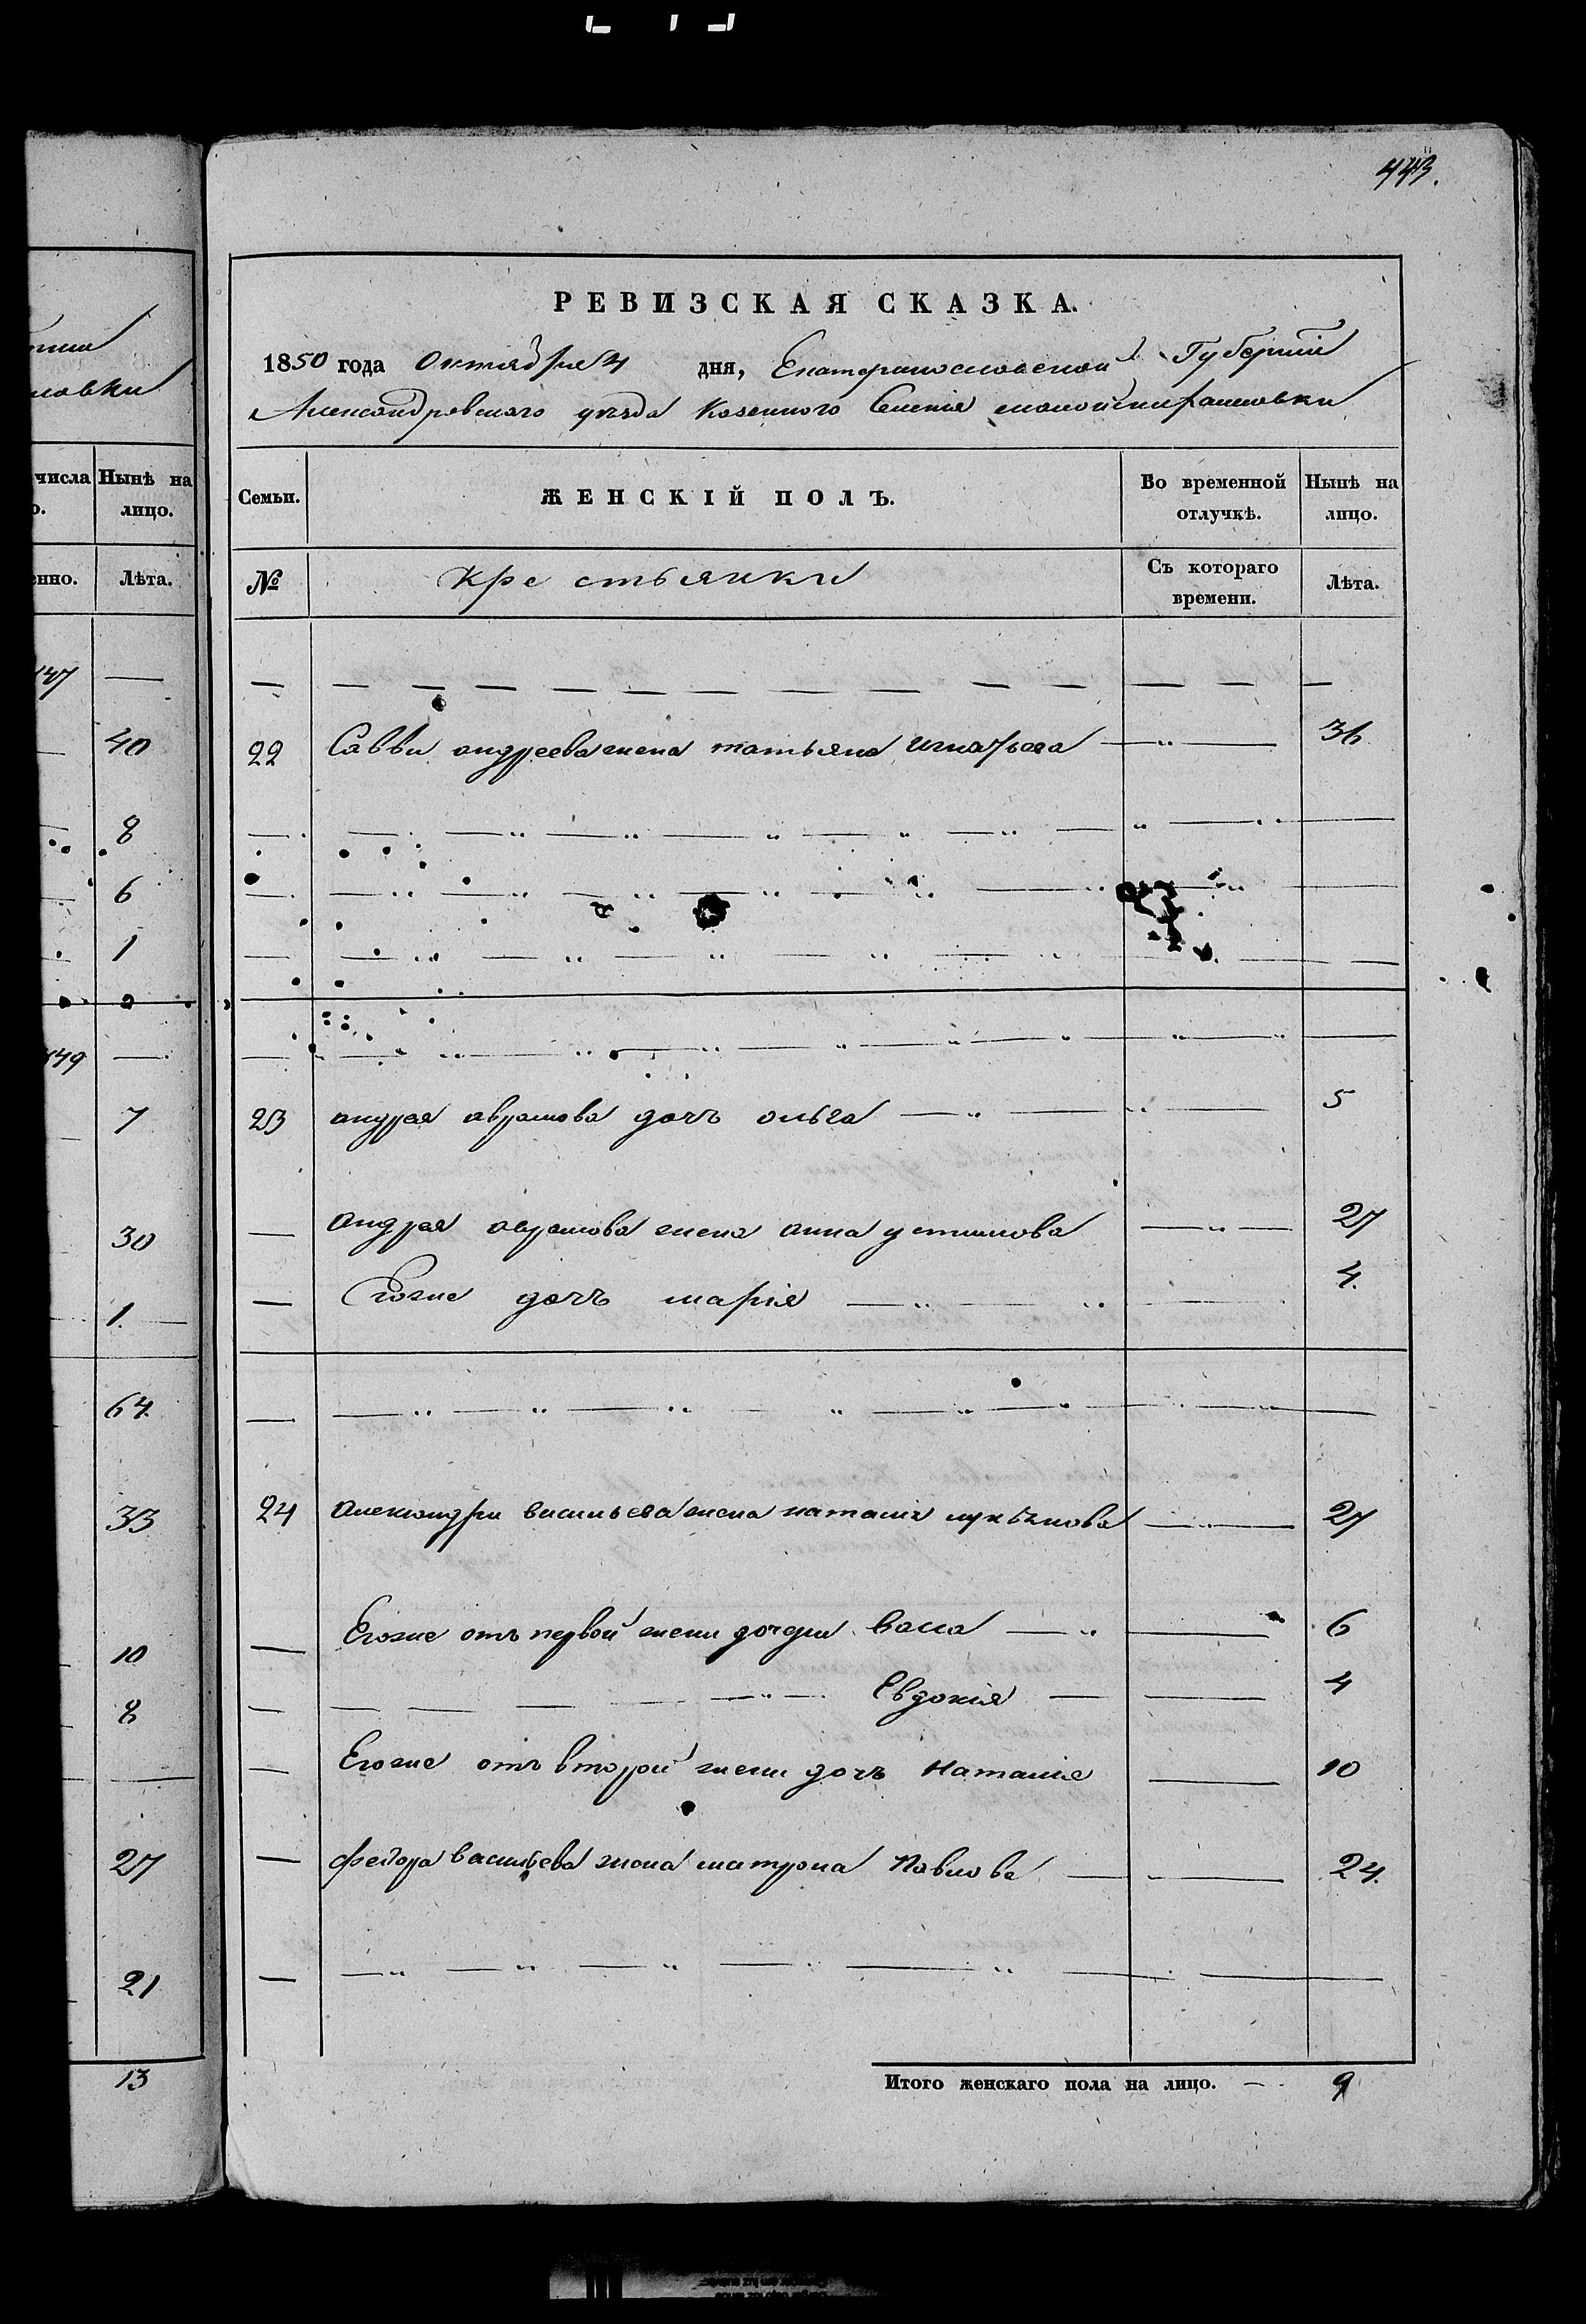 443.
РЕВИЗСКАЯ СКАЗКА.
1850 года Октября 4 дня, Екатеринославской Губернии
Александровского уезда Казенного Селения
Семьи. ЖЕНСКІЙ ПОЛЪ. Во временной отлучкѣ. Нынѣ на лицо.
№ Крестьянки Съ котораго времени. Лѣта.
22 Саввы андреева жена татьяна Игнатьева 36
23 андрея аврамова дочь ольга 5
андрея аврамова жена анна устимова 27
Егоже дочь марія 4.
24 александры васильева жена наталия лукьянова 27
Егоже отъ первой жены дочери Васса 6
Евдокия 4
Егоже отъ второй жены дочь Наталия 10
федора васильева жена матрона Павлова 24.
Итого женскаго пола на лицо. 9
числа Нынѣ на лицо.
Лѣта.
147
40
8
6
1
149
7
30
1.
64
33
10
8
27
21
13